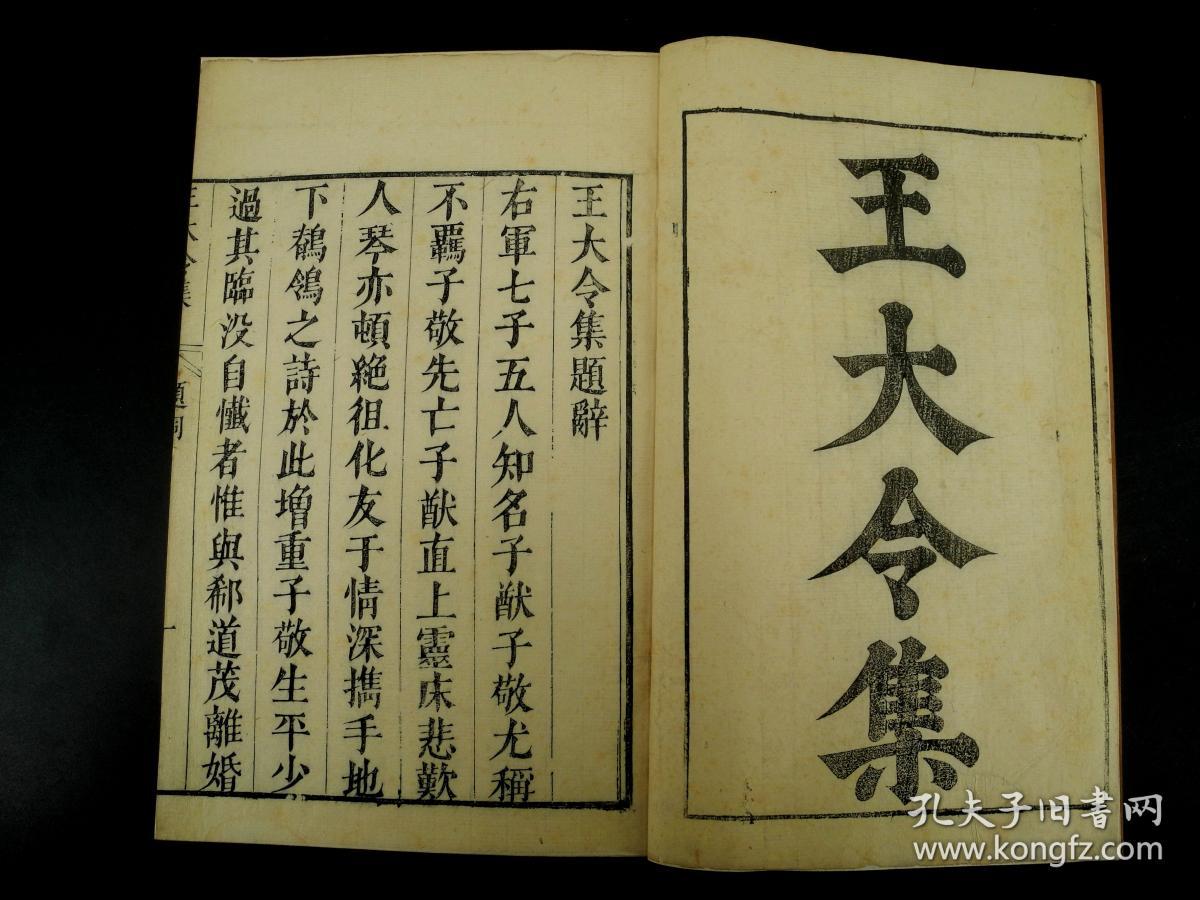 王大令集
王大令集題辭
右軍七子五人知名子猷子敬尤稱
不羈子敬先亡子猷直上靈床悲歎
人琴亦頓絶徂化友于情深擕手地
下鶺鴒之詩於此增重子敬生平少
過其臨没自懺者惟與郗道茂離婚
王大令集
題詞
一
孔夫子旧书网
www.kongfz.com